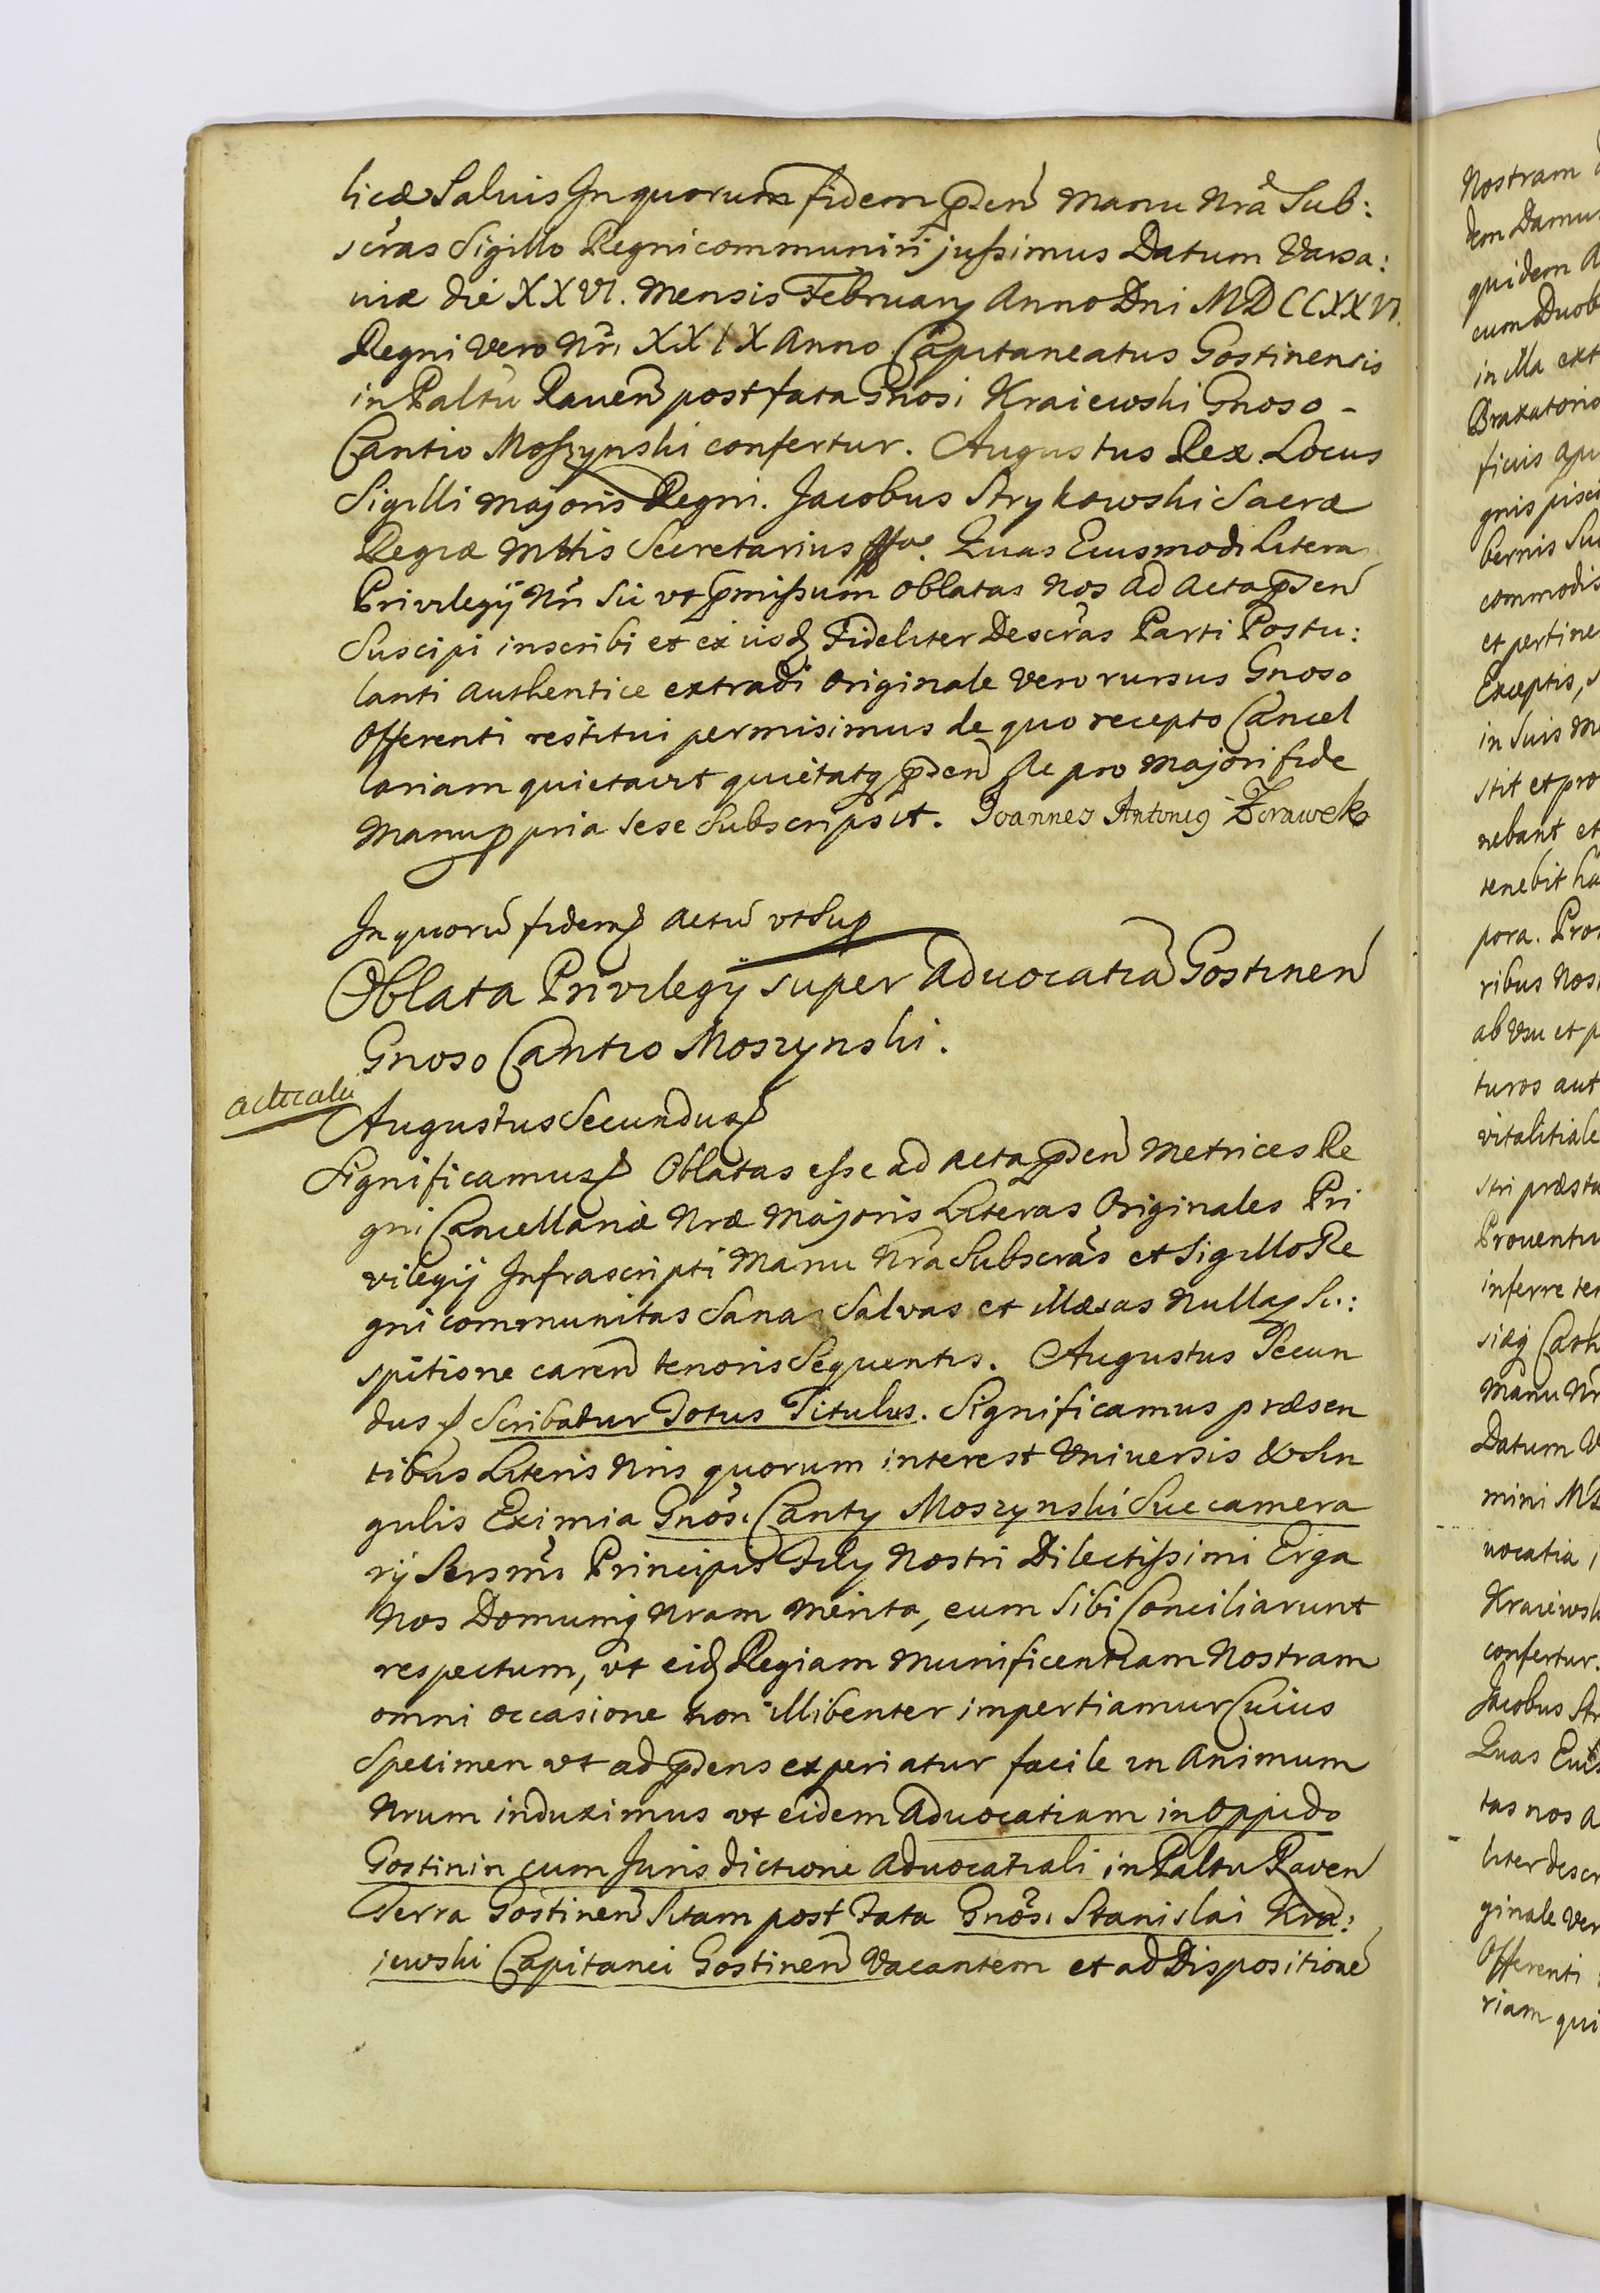 licæ Salvis In quorum fidem p̃sen̄ Manu Nr̃a Sub:
scr̃as Sigillo Regni communiri jussimus Datum Varsa:
viæ die XXVI. Mensis February Anno Dni MDCCXXVI.
Regni vero Nr̃i XXIX Anno Capitaneatus Gostinensis
in Paltũ Raven̄ post fata Gnosi Kraiewski Gnoso -
Cantio Moszynski confertur. Augustus Rex. Locus
Sigilli Majoris Regni. Jacobus Strykowski Sacræ
Regiæ Mttis Secretarius Quas Eiusmodi Litera
Privilegij Nri Sic ut p̃missum oblatas Nos ad Acta p̃sen̄
Suscipi inscribi et ex iisd Fideliter Descr̃as Parti Postu:
lanti Authentice extradi Originale vero rursus Gnoso
Offerenti restitui permisimus de quo recepto Cancel
lariam quietavit quietatq p̃sen̄ Ac pro Majori fide
Manu ppria sese subscripsit. Joannes Antoniq Zorawek
In quorũ fidem Actũ ut Sup
Oblata Privilegij super Advocatiã Gostinen̄
Gnoso Cantio Moszynski.
Augustus Secundus
Significamus Oblatas esse ad Acta p̃sen̄ Metrices Re
gni Cancellariæ Nræ Majoris Literas Originales Pri
vilegij Infrascripti Manu Nr̃a Subscr̃as et Sigillo Re
gni communitas Sanas Salvas et illæsas Nullaq Su:
spitione caren̄ tenoris Sequentis. Augustus Secun
dus Scribatur Totus Titulus. Significamus præsen
tibus Literis Nris quorum interest Universis & Sin
gulis Eximia Gnos̃i Canty Moszynski Succamera
rij Sersm̃i Principis Fily Nostri Dilectissimi Erga
Nos Domumq Nram Merita, eum Sibi Conciliarunt
respectum, ut eid Regiam Munificentiam Nostram
omni occasione non illibenter impertiamur Cuius
Specimen ut ad p̃sens experiatur facile in Animum
Nrum induximus ut eidem Advocatiam in Oppido
Gostinin cum Jurisdictione Advocatiali in Paltu Raven̄
Terra Gostinen̄ Sitam post Fata Gnos̃i Stanislai Kra:
iewski Capitanei Gostinen̄ Vacantem et ad Dispositionẽ
Nostram
dem Damus
quidem
cum Duob
in illa ext
Braxatorio
ficiis
gnis pisci
bernis
commodis
et pertine
Exceptis,
in Suis
stit et pro
nebant et
tenebit
pora.
ribus Nos
ab usu et p
turos aut
vitalitiale
stri præsta
Proventu
inferre
siæq Cath
Manu Nr
Datum
mini
vocatia
Kraiewsk
confertur.
Jacobus Str
Quas
tas nos
liter descr
ginale ver
Offerenti
riam qui